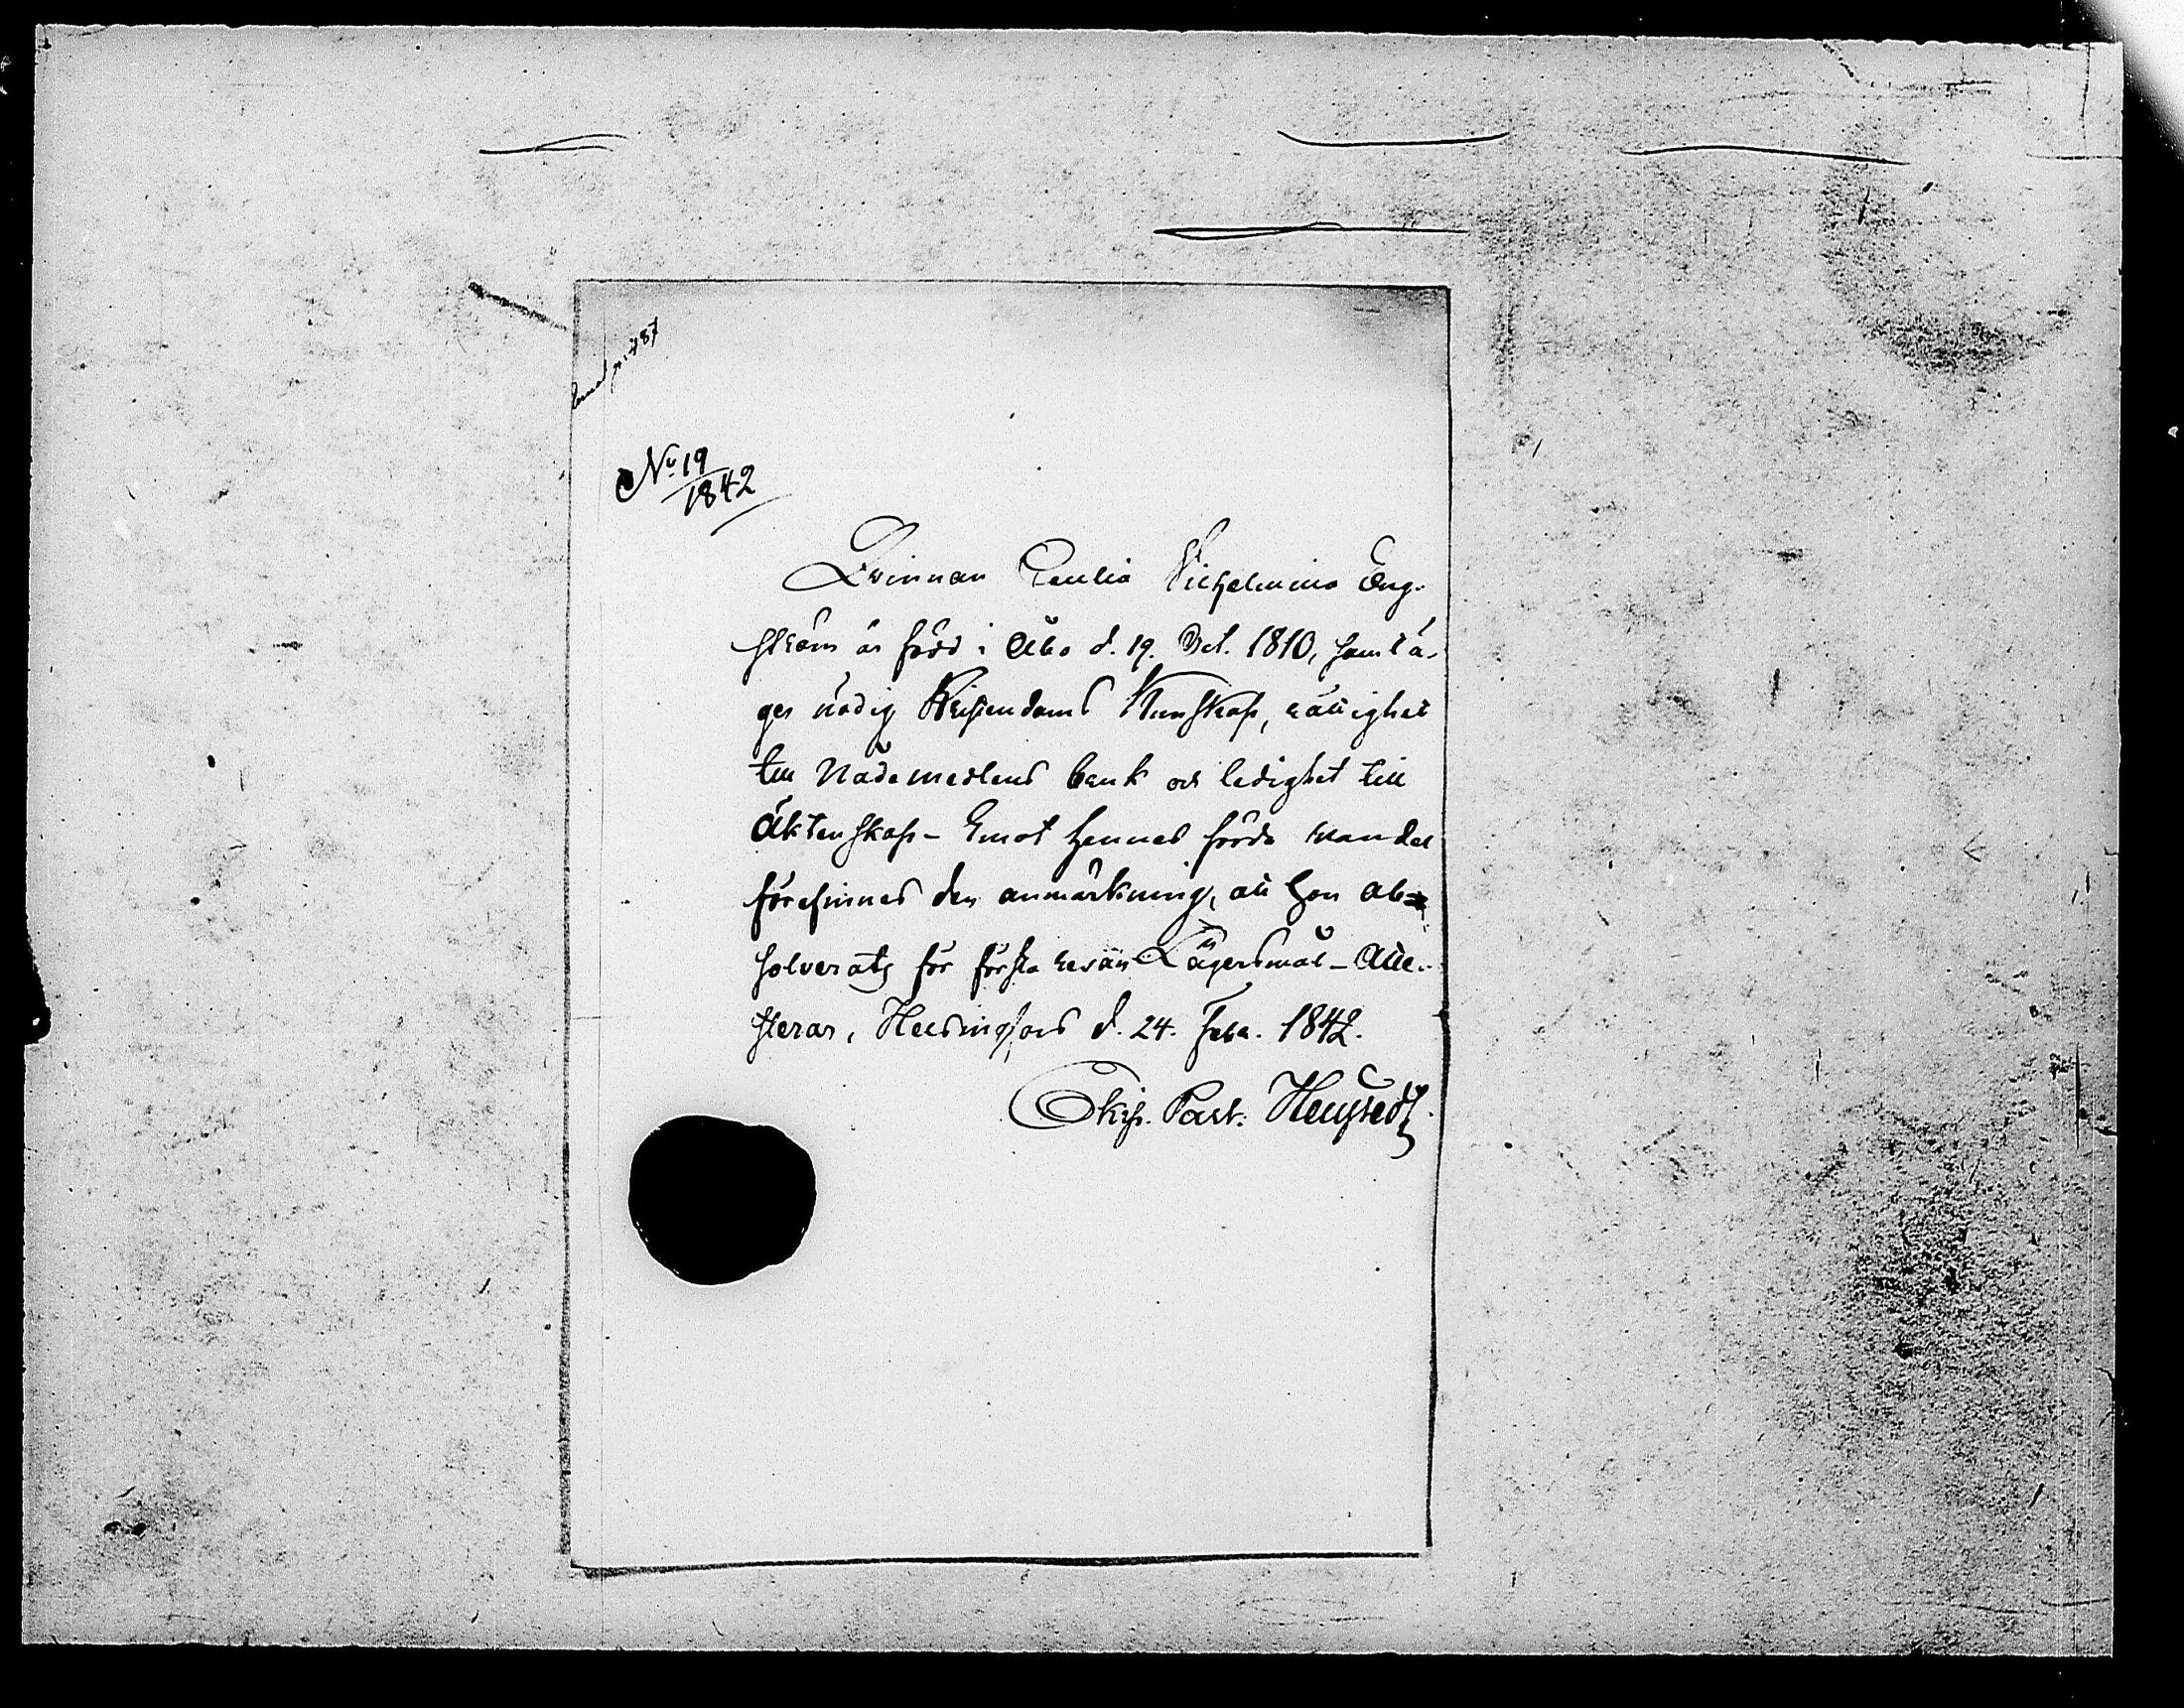 № 19
1842
Qvinnan Cecilia Wilhelmina Eng-
ström är född i Åbo d. 19. Oct. 1810, samt ä-
ger nödig Kristendoms Kunskap, rättighet
till Nådemedlens bruk och ledighet till
Äktenskap – Emot hennes förda wandel
förefinnes den anmärkning, att hon ab-
solverats för första resan Lägersmål – Atte-
sterar, Helsingfors d. 24. Febr. 1842.
Past.